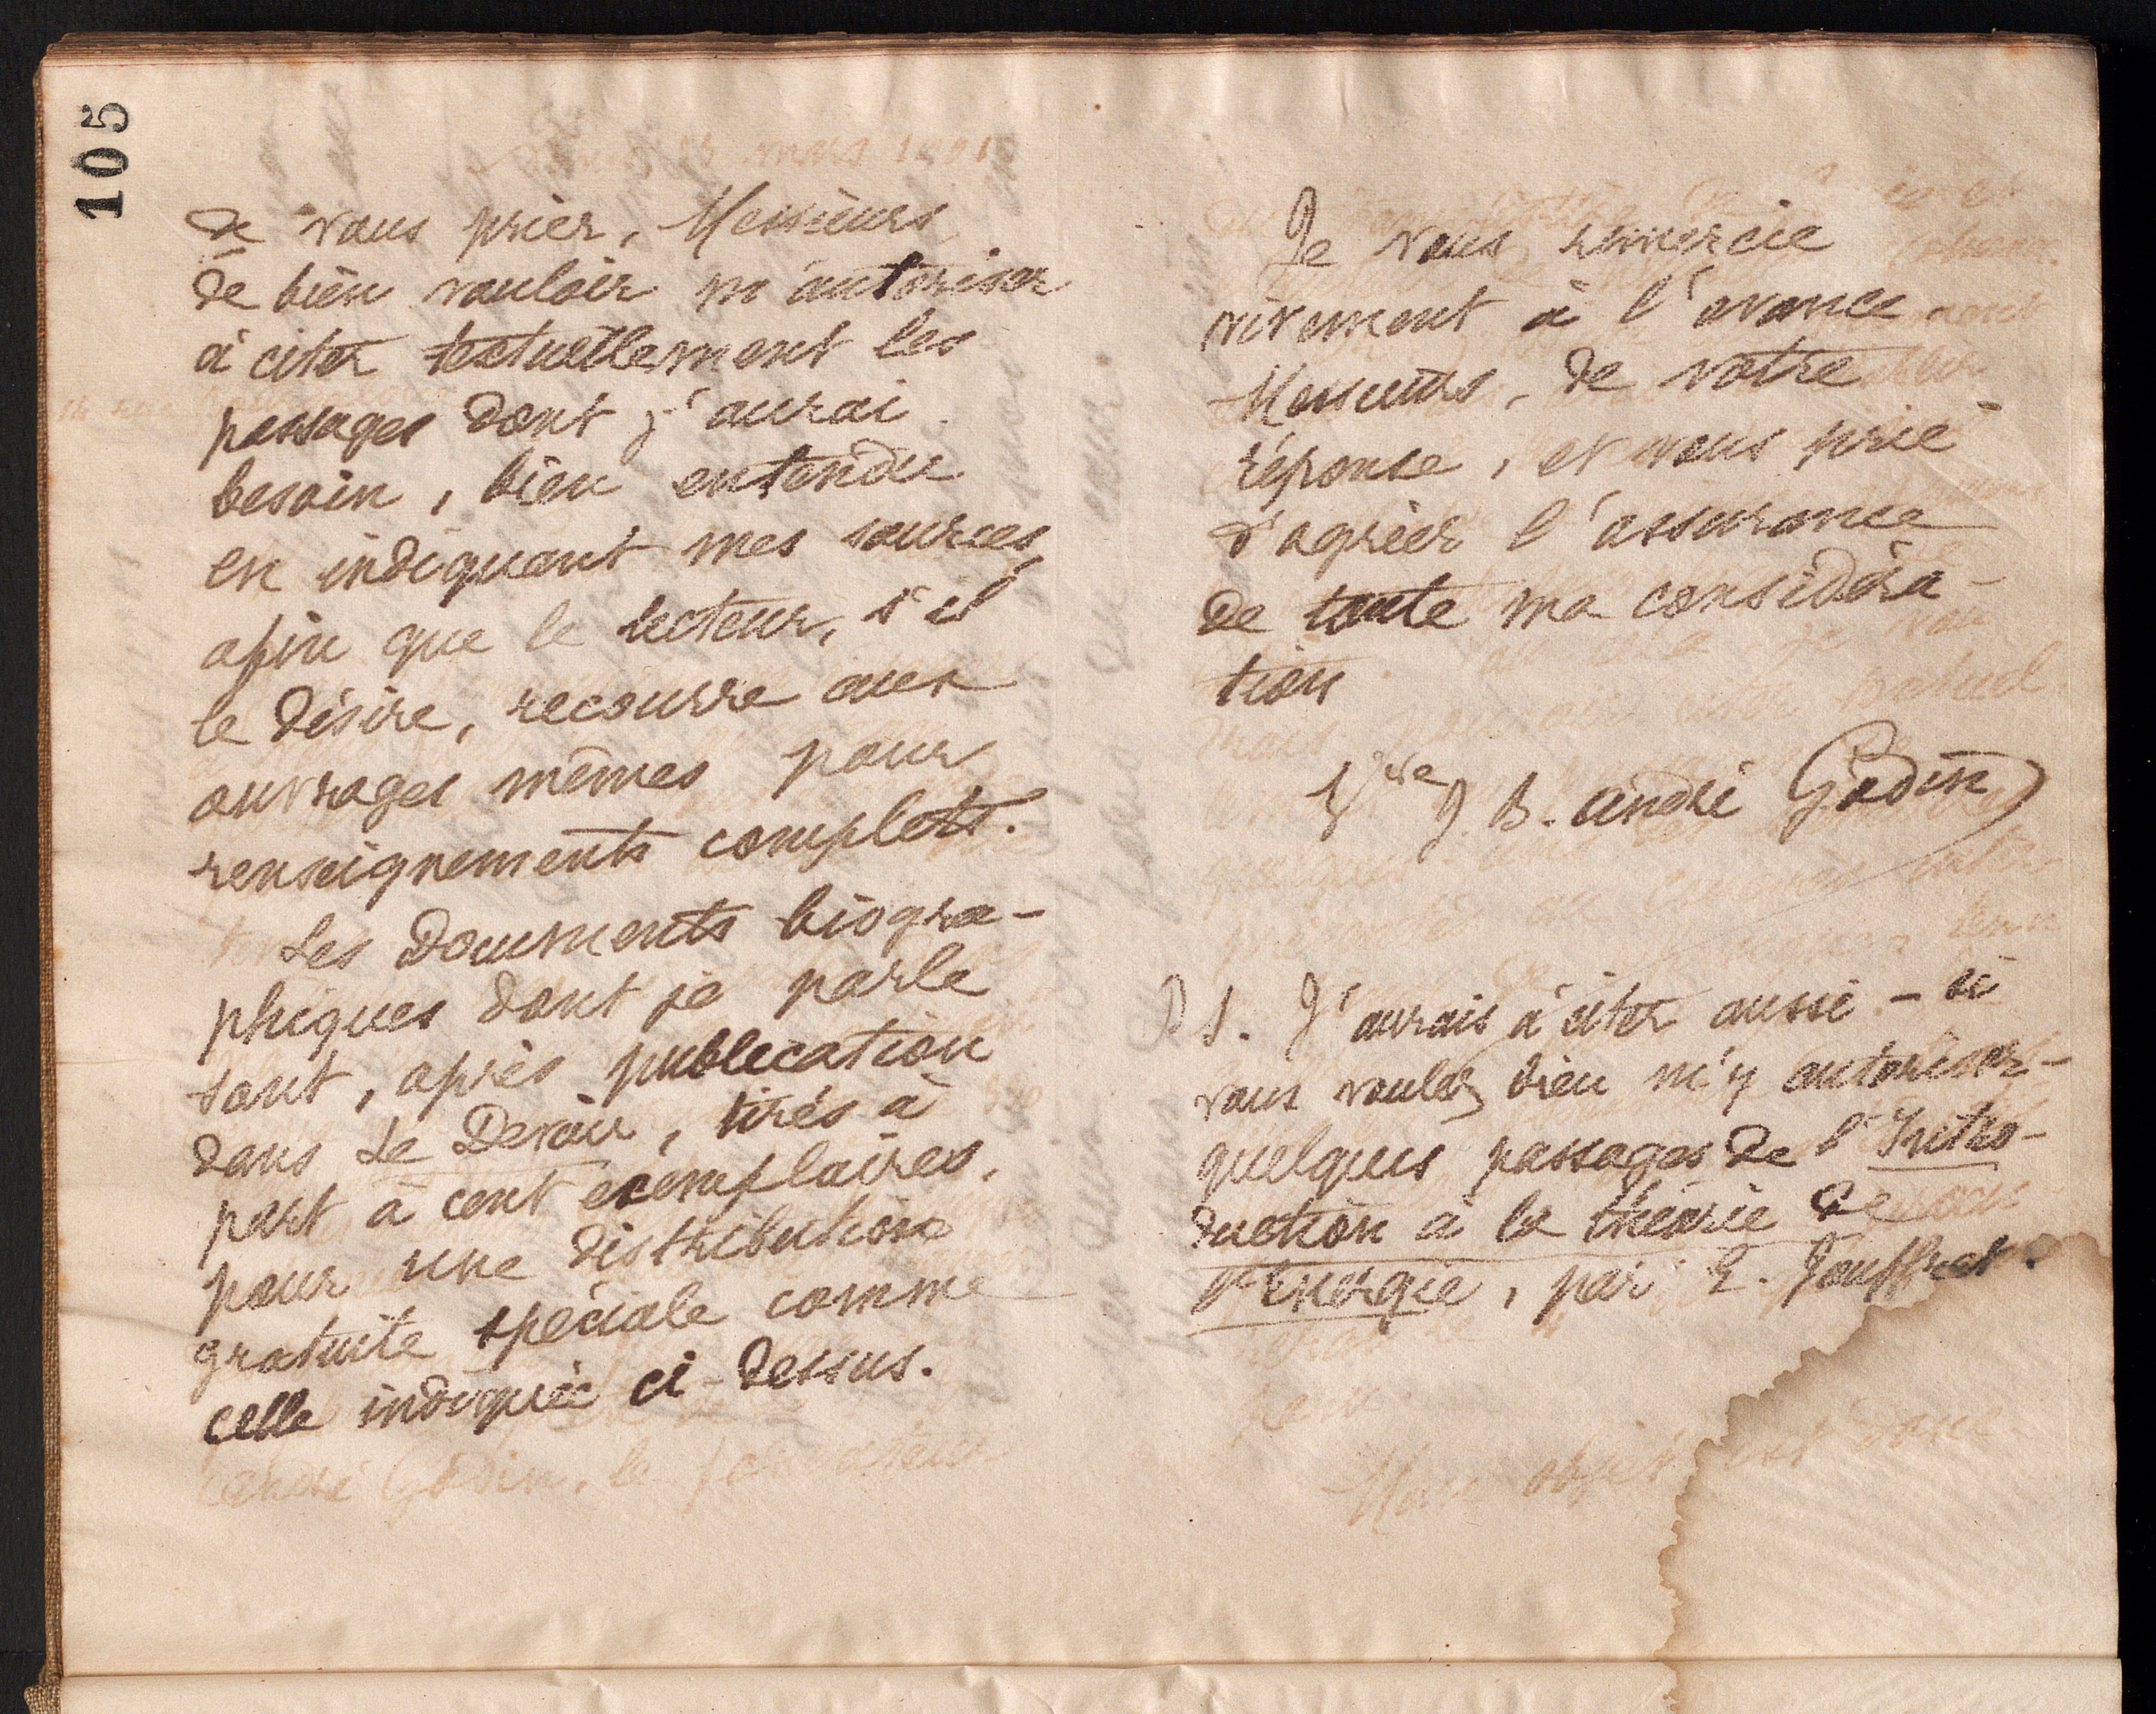 105
de vous prier, Messieurs,
de bien vouloir m'autoriser
à citer textuellement les
passages dont j'aurai
besoin, bien entendu
en indiquant mes sources,
afin que le lecteur, s'il
le désire, recourre aux
ouvrages mêmes pour
renseignements complets.
Les documents biogra-
phiques dont je parle
sont, après publication
dans Le Devoir, tirés à
part à cent exemplaires,
pour une distribution
gratuite spéciale comme
celle indiquée ci-dessus.
Je vous remercie
vivement à l'avance
Messieurs, de votre
réponse, et vous prie
d'agréer l'assurance
de toute ma considéra-
tion
Vve J. B. André Godin
P S. J'aurais à citer aussi - si
vous voulez bien m'y autoriser -
quelques passages de l'Intro-
duction à la théorie de
l'Energie, par E. Jouffret.